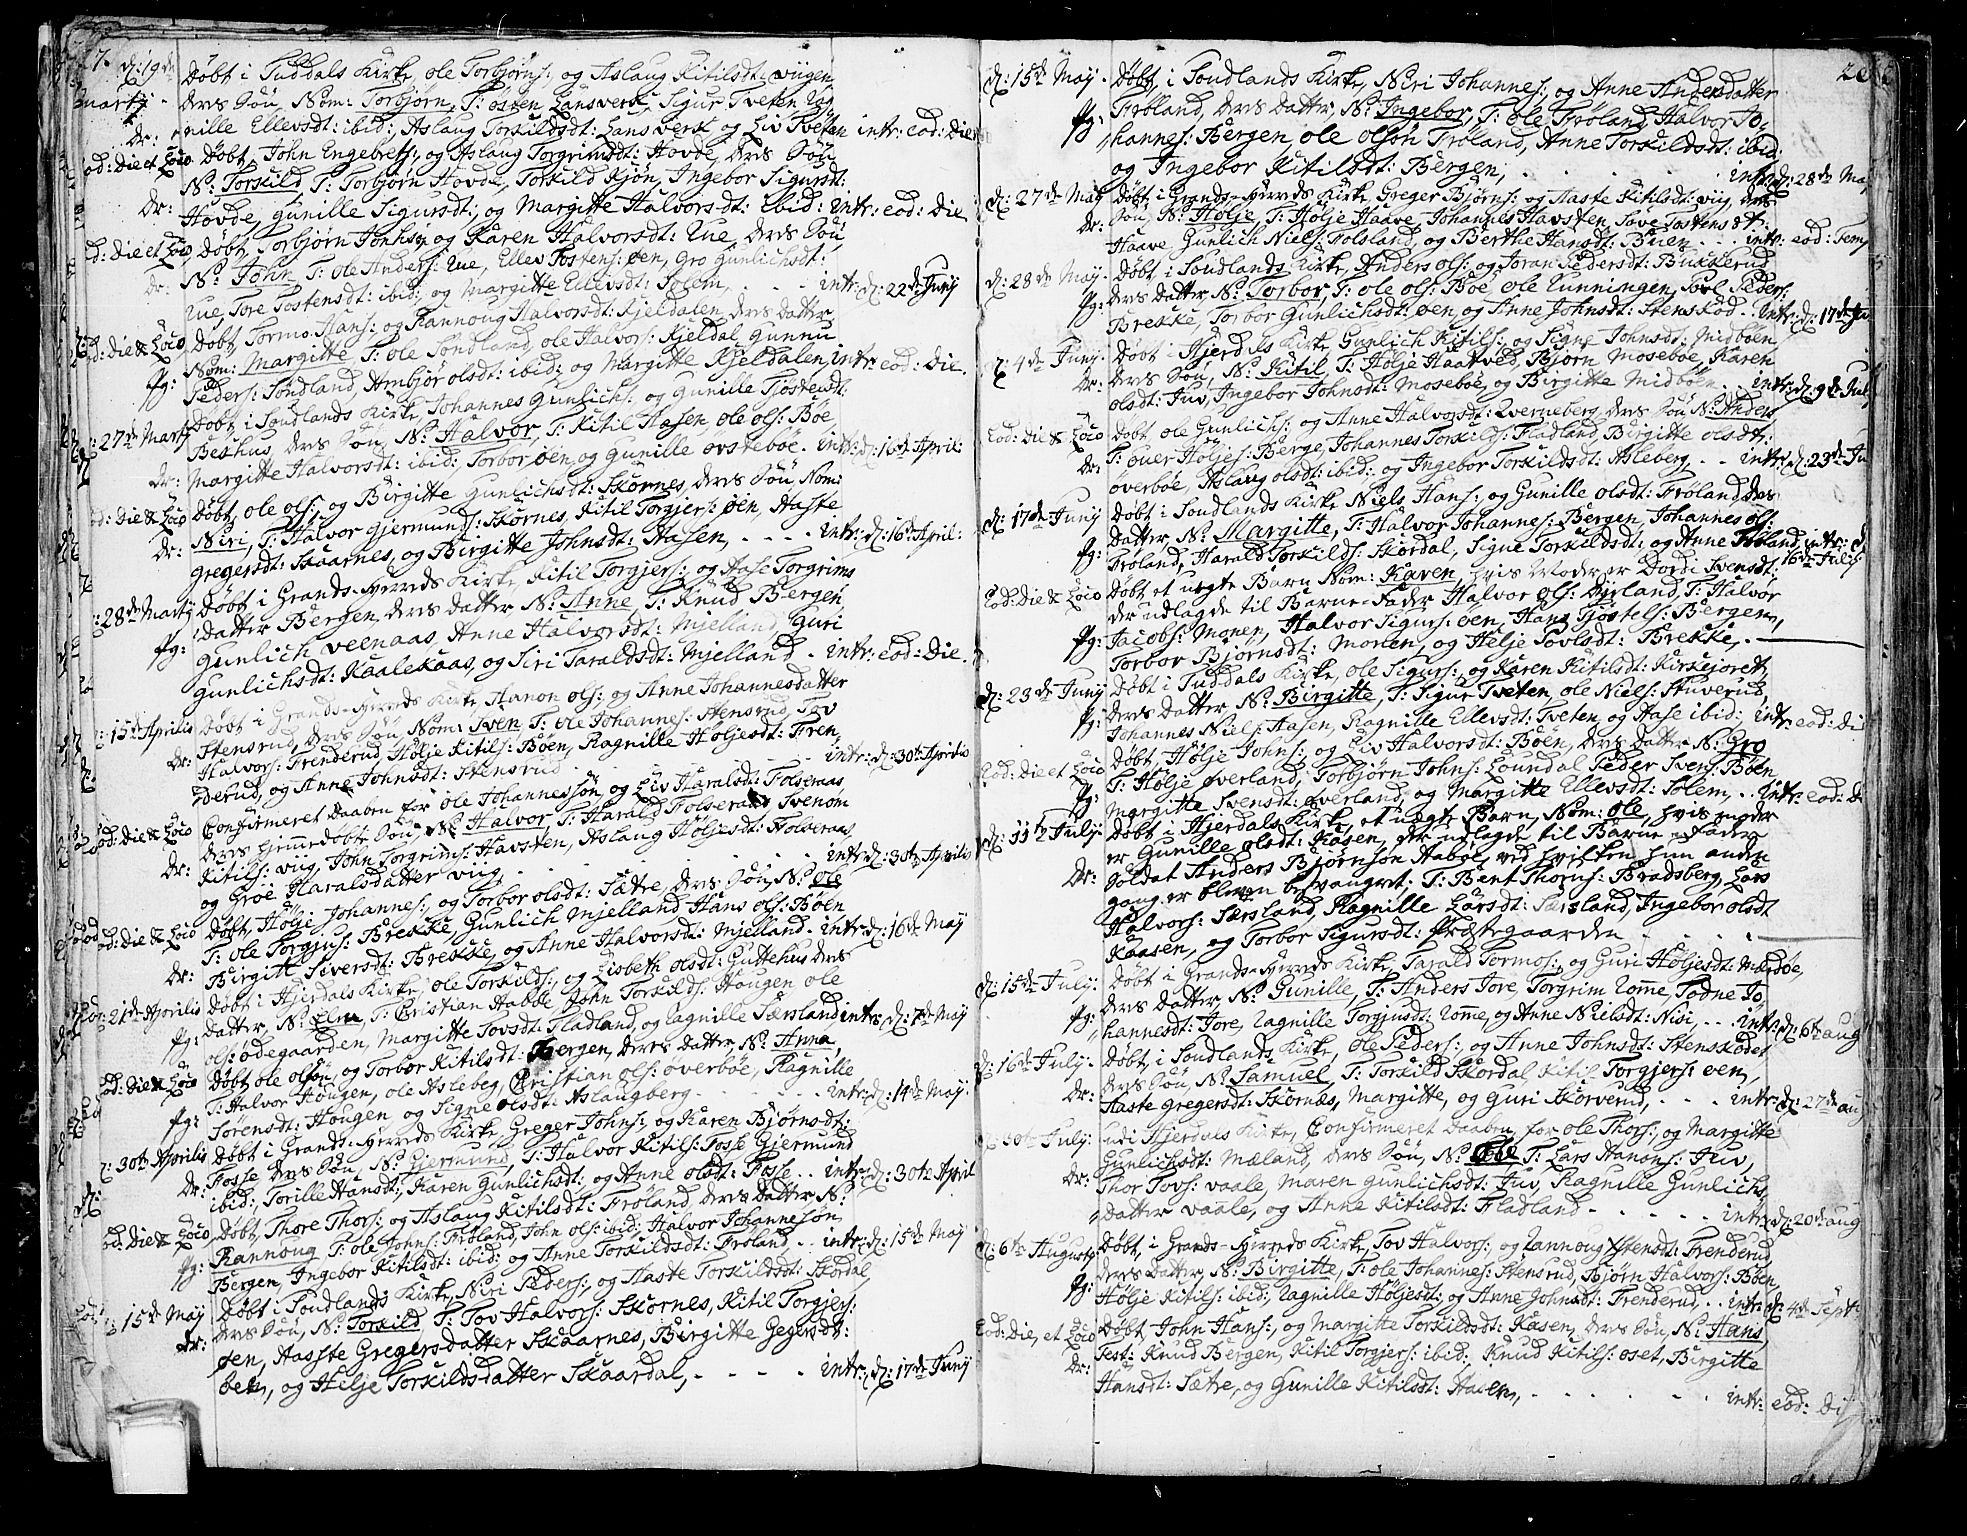 d: 19de Døbt i Tuddals Kirke, ole Torbjørns: og Aslaug Kitilsdt: viigen,
Martij - deres Søn, Nom: Torbjørn, T: østen Lansverk, Sigur Tveten, Rag-
dr: nille Ellevsdt: ibid:, Aslaug Torkildsdt: Lansverk og Liv Tveten intr: eod: Die
eod: Die et Loco Døbt, John Engebrets:, og Aslaug Torgrimsdt: Hovde, deres Søn
N: Torkild, T: Torbjørn Hovde, Torkild Kjøn, Ingebor Sigursdt:
dr: Hovde, gunille Sigursdt:, og Margitte Halvorsdt: ibid: intr: eod: Die
eod: Die et Loco Døbt, Torbjørn Johns: og Karen Halvorsdt: Rue, deres Søn
dr: N: John, T: ole Anders: Rue, Ellev Tostens: øen, Gro Gunlichsdt:
Rue, Tore Tostensdt: ibid:, og Margitte Ellevsdt: Solem, - - - intr: d: 22de Junij
eod: Die & Loco Døbt, Tormo Hans: og Rannoug Halvorsdt: Kjeldalen, deres Datter
pg: Nom: Margitte, T: ole Sondland, ole Halvors: Kjeldal, Gunnu
Peders: Søndland, Ambjør olsdt: ibid:, og Margitte Kjeldalen, intr: eod: Die.
d: 27de Martij Døbt i Soudlands Kirke, Johannes Gunlichs: og Gunille Tjostensdt:
Bekhus, deres Søn, N: Halvor, T: Kitil Aasen, ole ols: Bøe
dr: Margitte Halvorsdt: ibid:, Torbor øen, og Gunille øvstebøe. intr: d: 16de April:
eod: Die & Loco Døbt, ole ols:, og Birgitte Gunlichsdt: Skornes, deres Søn, Nom:
dr: Niri, T: Halvor Gjermunds: Skornes, Kitil Torgjers: øen, Aaste
gregersdt: Skaarnes, og Birgitte Johnsdt: Aasen, - - - - intr: d: 16de April:
d: 28de Martij Døbt i Grands-Herreds Kirke, Kitil Torgjers:, og Aase Torgrims
pg: datter Bergen, deres Datter, N: Anne, T: Knud Bergen,
Gunlich veenaas, Anne Halvorsdt: Mjelland, Guri
Gunlichsdt: Kaalekaas, og Siri Taraldsdt: Mjelland - intr: eod: Die.
d: 15de Aprilis Døbt i Grands-Herreds Kirke Hanon ols: og Anne Johannesdatter
dr: Stensrud, deres Søn, Nom: Sven, T: ole Johannes: Stensrud, Tov
Halvors: Frenderud, Hølje Kitils: Bøen, Ragnille Høljesdt: Fren-
derud, og Anne Johnsdt: Stensrud - - - intr: d: 30te Aprilis
eod: Die & Loco Confirmeret Daaben for ole Johannessøn, og Liv Haralsdt: Folseraas
deres hjemmedøbte Søn, N: Halvor, T: Harald Folseraas, Svenom
dr: Kitils: viig, John Torgrims: Havsten, Aslaug Høljesdt: Folseraas
og Groe Haralsdatter viig - - - intr: d: 30te Aprilis
eod: Die & Loco Døbt, Hølje Johannes:, og Torbor olsdt: Sætre, deres Søn, N: ole
T: ole Torgjus: Brekke, Gunlich Mjelland, Hans ols: Bøen
dr: Birgitt Siversdt: Brekke, og Anne Halvorsdt: Mjelland - intr: d: 16de Maij
d: 21de Aprilis Døbt i Hjerdals Kirke, ole Torkilds:, og Lisbeth olsdt: Guttehus deres
pg: datter, N: Elen, T: Cristian Habøe, John Torkilds: Hougen, ole
ols: ødegaarden, Margitte Tovsdt: Fladland, og Ragnille Særsland, intr: d: 7de Maij
eod: Die & Loco Døbt, ole olsøn, og Torbor Kitilsdt: Bergen, deres Datter, N: Anna,
pg: T: Halvor Hougen, ole Aslebeg, Christian ols: overbøe, Ragnille
Sorensdt: Hougen og Signe olsdt: Aslaugberg - - - intr: d: 14de Maij
d: 30te Aprilis Døbt i Grands-Herreds Kirke, Greger Johns:, og Karen Bjørnsdt:
dr: Fosse deres Søn, N: Gjermund, T: Halvor Kitils: Fosse, Gjermund
ibid:, Torille Hansdt:, Karen Gunlichsdt:, og Anne olsdt: Fosse.. intr: d: 30te April
eod: Die & Loco Døbt, Thore Thors: og Aslaug Kitilsdt: Frøland, deres Datter, N:
pg: Rannoug, T: ole Johns: Frøland, John ols: ibid:, Halvor Johannesøn
Bergen, Ingebor Kitilsdt: ibid:, og Anne Torkildsdt: Frøland, - intr: d: 15de Maij
d: 15de Maij Døbt i Soudlands Kirke, Niri Peders:, og Aaste Torkildsdt: Skordal,
dr: deres Søn, N: Torkild, T: Tov Halvors: Skornes, Kitil Torgjers:
øen, Aasste Gregersdatter Skaarnes, Birgitte Gegersdt:
øen, og Hilje Torkildsdatter Skaardal, - - - - intr: d: 17de Junij
d: 15de Maij - Døbt, i Soudlands Kirke, Niri Johannes:, og Anne Andersdatter
pg: Frøland, deres Datter, N: Ingebor, T: ole Frøland, Halvor Jo-
hannes: Bergen, ole olsøn Frøland, Anne Torkildsdt: ibid:
og Ingebor Kitilsdt: Bergen, - - - intr: d: 28de Ma
d: 27de Maij Døbt i Grands-Herreds Kirke, Greger Bjørns:, og Aaste Kitilsdt: viig, deres
dr: Søn, N: Hølje, T: Hølje Haave, Johannes Havsten, Tove Tostensdt:
Haave, Gunlich Niels: Folsland, og Berthe Hansdt: Buen - - - intr: eod: Temp
d: 28de Maij. Døbt, i Soudlands Kirke, Anders ols:, og Joran Pedersdt: Bukkerud
pg: deres Datter, N: Torbor, T: ole ols: Bøe, ole Lunningen, Povl Peders:
Brekke, Torbor Gunlichsdt: øen, og Anne Johnsdt: Stenskod - intr: d: 17de Ju
d: 4de Junij. Døbt, i Hjerdals Kirke, Gunlich Kitils:, og Signe Johnsdt: Midbøen
dr: deres Søn, N: Kitil, T: Hølje Haatved, Bjørn Mosebøe, Karen
olsdt: Juv, Ingebor Johnsdt: Mosebøe, og Birgitte Midbøen - intr: d: 9de Julj
Eod: Die & Loco Døbt, ole Gunlichs:, og Anne Halvorsdt: Qverneberg, deres Søn, N: Anders
dr: T: øuer Høljes: Berge, Johannes Torkilds: Fladland, Birgitte olsdt:
overbøe, Aslaug olsdt: ibid:, og Ingebor Torkildsdt: Asleberg, - - intr: d: 23de Ju
d: 17de Junij Døbt i Soudlands Kirke Niels Hans:, og Gunille olsdt: Frøland, deres
pg: datter, N: Margitte, T: Halvor Johannes: Bergen, Johannes ols:
Frøland, Harald Torkilds: Skordal, Signe Torkildsdt: og Anne Frøland, intr: d: 16de Julij
Eod: Die & Loco Døbt et uægte Barn, Nom: Karen, hvis Moder er Dordi Svensdt:
der udlagde til Barne-Fader Halvor ols: Bjørland, T: Halvor
pg: Jacobs: Monen, Halvor Sigurs: øen, Hans Tjostels: Bergen,
Torbor Bjørnsdt: Monen, og Helje Povlsdt: Brekke, -
d: 23de Junij Døbt i Tuddals Kirke, ole Sigurs:, og Karen Kitilsdt: Kirkejoret,
pg: deres Datter, N: Birgitte, T: Sigur Tveten, ole Niels: Stuverud,
Johannes Niels: Aasen, Ragnille Ellevsdt: Tveten, og Aase ibid:, intr: eod: Di
Eod: Die et Loco Døbt, Hølje Johns:, og Liv Halvorsdt: Bøen, deres Datter, N: Gro
pg: T: Hølje øverland, Torbjørn Johns: Loundal, Peder Svens: Bøen
Margitte Svensdt: øverland, og Margitte Ellevsdt: Solem, - intr: eod: Di
d: 11te Julij. Døbt, i Hjerdals Kirke, et uægte Barn, Nom: ole, hvis moder
er Gunille olsdt: Kaasen, der udlagde til Barne-Fader
dr: Soldat Anders Bjørnsøn Habøe, ved hvilken hun anden
gang er bleven besvangret; T: Bent Thorns: Bradsberg, Lars
Halvors: Særsland, Ragnille Larsdt: Særsland, Ingebor olsdt
Kaasen, og Torbor Sigursdt: Præstegaarden - - -
d: 15de Julij: Døbt i Grands-Herreds Kirke, Tarald Tormos:, og Guri Høljesdt: Mærdøe,
pg: deres datter, N: Gunille, T: Anders Jore, Torgrim Romme, Todne Jo-
hannesdt: Jore, Ragnille Torgjusdt: Romme, og Anne Nielsdt: Nisi, - - intr: d: 6te aug
d: 16de Julij. Døbt, i Soudlands Kirke, ole Peders:, og Anne Johnsdt: Stenskodet
dr: deres Søn, N: Samuel, T: Torkild Skordal, Kitil Torgjers: øen,
Aaste Gregersdt: Skornæs, Margitte, og Guri Skorverud, - - - intr: d: 27de aug
d: 30te Julij: udi Hjerdals Kirke, Confirmeret Daaben, for ole Thors:, og Margitte
Gunlichsdt: Mæland, deres Søn, N: T: Lars Hanons: Juv,
dr: Thor Tovs: vaale, Maren Gunlichsdt: Juv, Ragnille Gunlichs-
datter vaale, og Anne Kitilsdt: Fladland - - - - - intr: d: 20de aug
d: 6te Augusti: Døbt, i Grands-Herreds Kirke, Tov Halvors:, og Rannoug Stensdt: Frenderud,
pg: deres Datter, N: Birgitte, T: ole Johannes: Stensrud, Bjørn Halvors: Bøen,
Hølje Kitils: ibid:, Ragnille Høljesdt:, og Anne Johnsdt: Frenderud, - - intr: d: 4de Septr
Eod: Die, et Loco Døbt, John Hans:, og Margitte Torkildsdt: Kaasen, deres Søn, N: Hans,
dr: Test: Knud Bergen, Kitil Torgjers: ibid:, Knud Kitils: øset, Birgitte
Hansdt: Sætre, og Gunille Kitilsdt: Aasen, - - - - - - intr: eod: Di